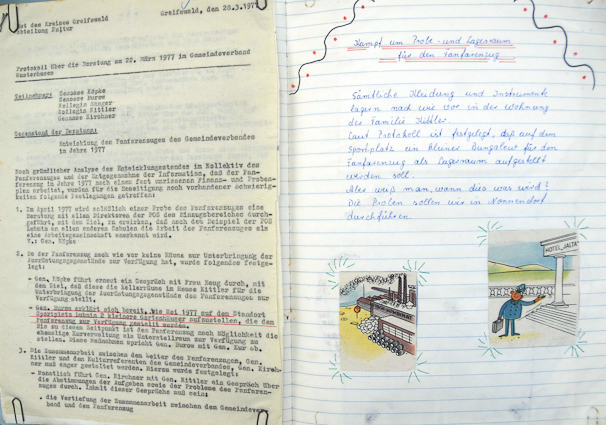 Rat des Kreises Greifswald
Abteilung Kultur
Greifswald, den 28.3.1977
Protokoll über die Beratung am 22. März 1977 im Gemeindeverband
Teilnehmer: Genosse Köpke
Genosse
Kollegin
Kollegin Kittler
Genosse Kirchner
Gegenstand der Beratung:
Entwicklung des Fanfarenzuges des Gemeindeverbandes
im Jahre 1977
Nach gründlicher Analyse des Entwicklungsstandes im Kollektiv des
Fanfarenzuges und der Entgegennahme der Information, daß der Fan-
farenzug im Jahre 1977 nach einem fest umrissenen Finanz- und Proben-
plan arbeitet, wurden für die Beseitigung noch vorhandener Schwierig-
keiten folgende Festlegungen getroffen:
1. Im April 1977 wird anläßlich einer Probe des Fanfarenzuges eine
Beratung mit allen Direktoren der POS des Einzugsbereiches durch-
geführt, mit dem Ziel, zu erreichen, daß nach dem Beispiel der POS
Lubmin an allen anderen Schulen die Arbeit des Fanfarenzuges als
eine Arbeitsgemeinschaft anerkannt wird.
V.: Gen. Köpke
2. Da der Fanfarenzug nach wie vor keine Räume zur Unterbringung der
Ausrüstungsgegenstände zur Verfügung hat, wurde folgendes festge-
legt:
- Gen. Köpke führt erneut ein Gespräch mit Frau durch, mit
dem Ziel, daß diese die Kellerräume im Hause Kittler für die
Unterbringung der Ausrüstungsgegenstände des Fanfarenzuges zur
Verfügung stellt.
- Gen. erklärt sich bereit, bis Mai 1977 auf dem Standort
Sportplatz Lubmin 2 kleinere Gartenhäuser aufzustellen, die dem
Fanfarenzug zur Verfügung gestellt werden.
Bis zu diesem Zeitpunkt ist dem Fanfarenzug nach Möglichkeit die
ehemalige Kurverwaltung als Unterstellraum zur Verfügung zu
stellen. Diese Maßnahmen spricht Gen. mit Gen. ab.
3. Die Zusammenarbeit zwischen dem Leiter des Fanfarenzuges, Gen.
Kittler und den Kulturreferenten des Gemeindeverbandes, Gen. Kirch-
ner muß enger gestaltet werden. Hierzu wurde festgelegt:
- Monatlich führt Gen. Kirchner mit Gen. Kittler ein Gespräch über
die Abstimmungen der Aufgaben sowie der Probleme des Fanfaren-
zuges durch. Inhalt dieser Gespräche muß sein:
. die Vertiefung der Zusammenarbeit zwischen dem Gemeindever-
band und dem Fanfarenzug
Kampf um Probe- und Lagerraum
für den Fanfarenzug
Sämtliche Kleidung und Instrumente
lagern nach wie vor in der Wohnung
der Familie Kittler.
Laut Protokoll ist festgelegt, daß auf dem
Sportplatz ein kleiner Bungalow für den
Fanfarenzug als Lagerraum aufgestellt
werden soll.
Aber weiß man, wann dies war wird?
Die Proben sollen wir in Nonnendorf
durchführen.
HOTEL „JALTA"